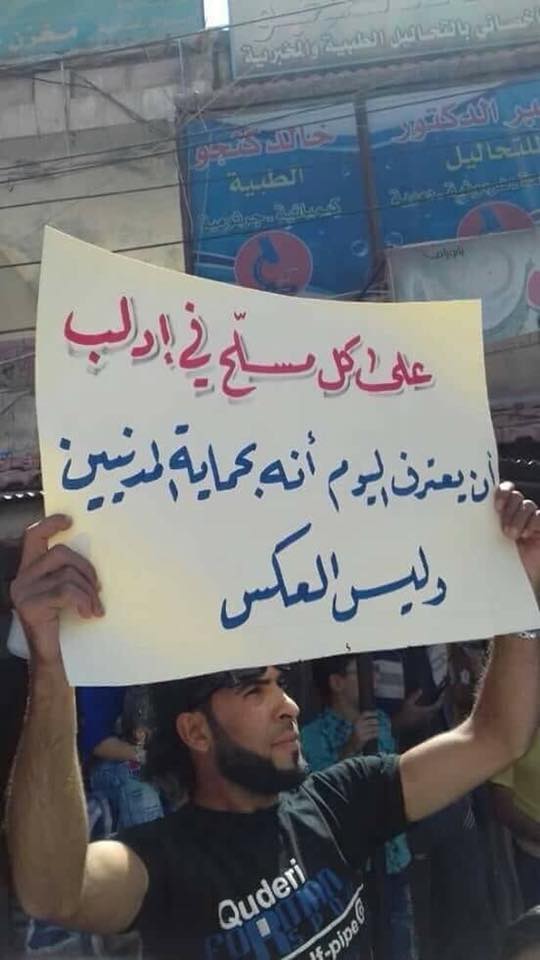 أخصائي بالتحاليل الطبية والمخبرية
خالد كتجو
الطبية
كيميائية - جرثومية
بر الدكتور
للتحاليل
على كل مسلّح في إدلب
أن يعترف اليوم أنه بحماية المدنيين
وليس العكس
Quderi
lf-pipe